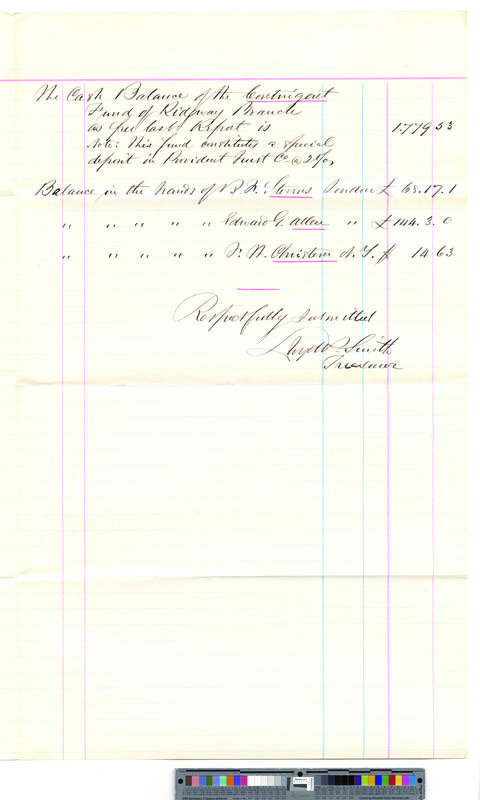 The Cash Balance of the Contingent
Fund of Ridgway Branch
as per last Report is 1779 53
Note: This fund constitutes a special
deposit in Provident Trust Co @ 2%
Balance in the hands of B. F. Stevens London £ 68.17.1
" " " " " Edward G. Allen " £ 144.3.0
" " " " " F. W. Christern N.Y. $ 14 63
Respectfully submitted
Lloyd P. Smith
Treasurer